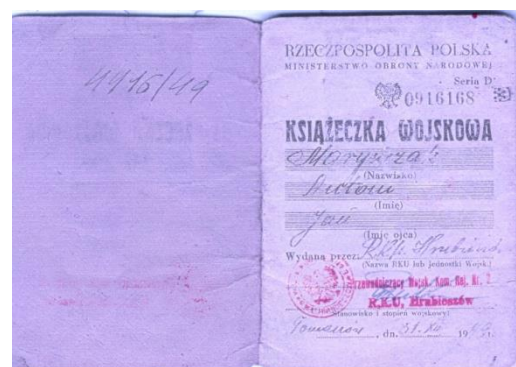 4416/49
RZECZPOSPOLITA POLSKA
MINISTERSTWO OBRONY NARODOWEJ
Seria D
0916168
KSIĄŻECZKA WOJSKOWA
(Nazwisko)
Antoni
(Imię)
Jan
(Imię ojca)
Wydana przez:
(Nazwa RKU lub jednostki Wojsk.)
Kom. Rej. Nr. 2
R.K.U. Hrubieszów
stanowisko i stopień wojskowy)
, dn. 31. XII 19